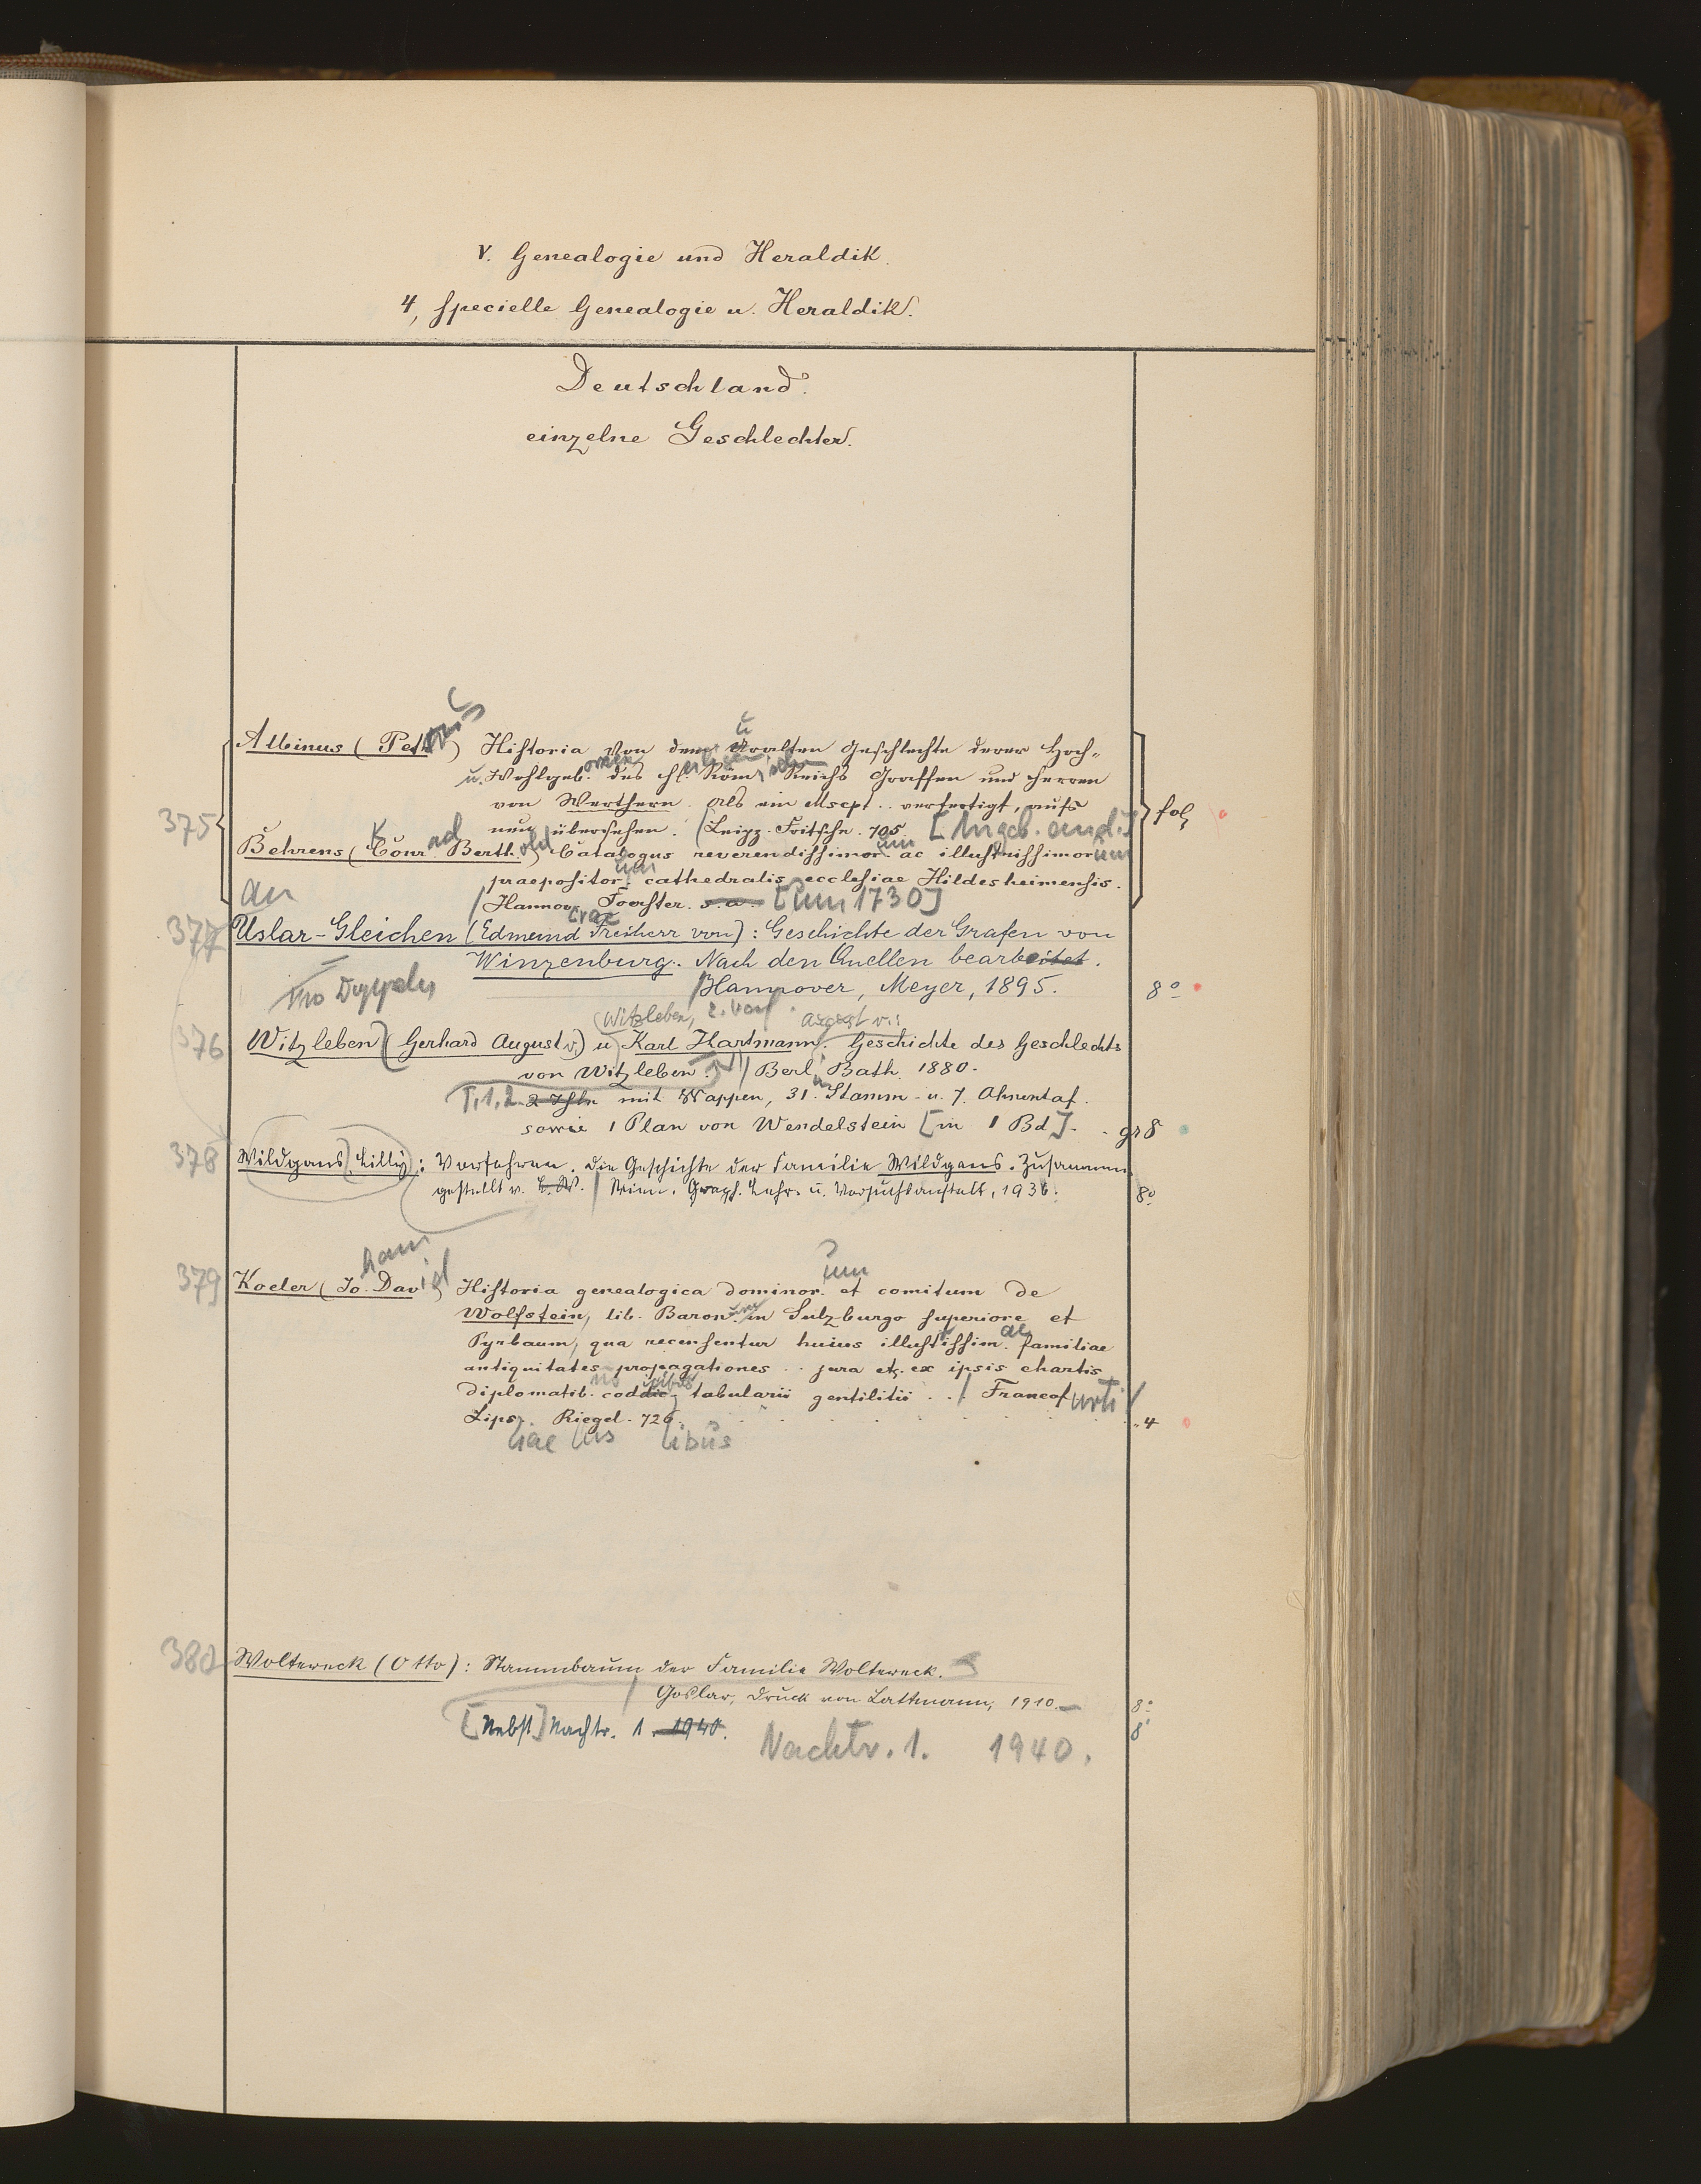 V. Genealogie und Heraldik.
4, specielle Genealogie u. Heraldik.
Deutschland.
einzelne Geschlechter.
Albinus (Petrus) Historia von dem Uralten Geschlechte derer Hoch-
u. Wohlgeb. des hl. Röm. Reichs Graffen und Herren
von Werthern. Als ein Mscpt. .. verfertigt, aufs
375 neu übersehen. Leipz. Fritsche. 705. fol.
Behrens (Conrad Berthold) Catalogus reverendissimorum ac illustrissimorum
praepositorum cathedralis ecclesiae Hildesheimensis.
an Hannov. Foerster. s. a. [um 1730]
377 Uslar-Gleichen (Edmund Freiherr von): Geschichte der Grafen von
Winzenburg. Nach den Quellen bearbeitet.
Hannover, Meyer, 1895. 8°
(Witzleben, August v.:
376 Witzleben (Gerhard August v.) u Karl Hartmann. Geschichte des Geschlechts
von Witzleben. Berl. Bath. 1880.
T. 1, 2. 2 Thle mit Wappen, 31 Stamm- u. 7. Ahnentaf.
sowie 1 Plan von Wendelstein [in 1 Bd]. gr 8
378 Wildgans, Lilly: Vorfahren. Die Geschichte der Familie Wildgans. Zusammen
gestellt v. L. W. Wien. Graph. Lehr- u. Versuchsanstalt, 1936. 8°
379 Koeler (Johann David) Historia genealogica dominorum et comitum de
Wolfstein, lib. Baron. in Sulzburgo superiore et
Pyrbaum, qua recensentur huius illustrissimae familiae
antiquitates propagationes .. jura etc. ex ipsis chartis
diplomatib. codd. tabularii gentilitii .. Francofurti
Lips. Riegel. 726. 4
380 Woltereck (Otto): Stammbaum der Familie Woltereck.
Goslar, Druck von Lattmann, 1910. 8°
[Nebst] Nachtr. 1. 1940. 8°
Nachtr. 1. 1940.